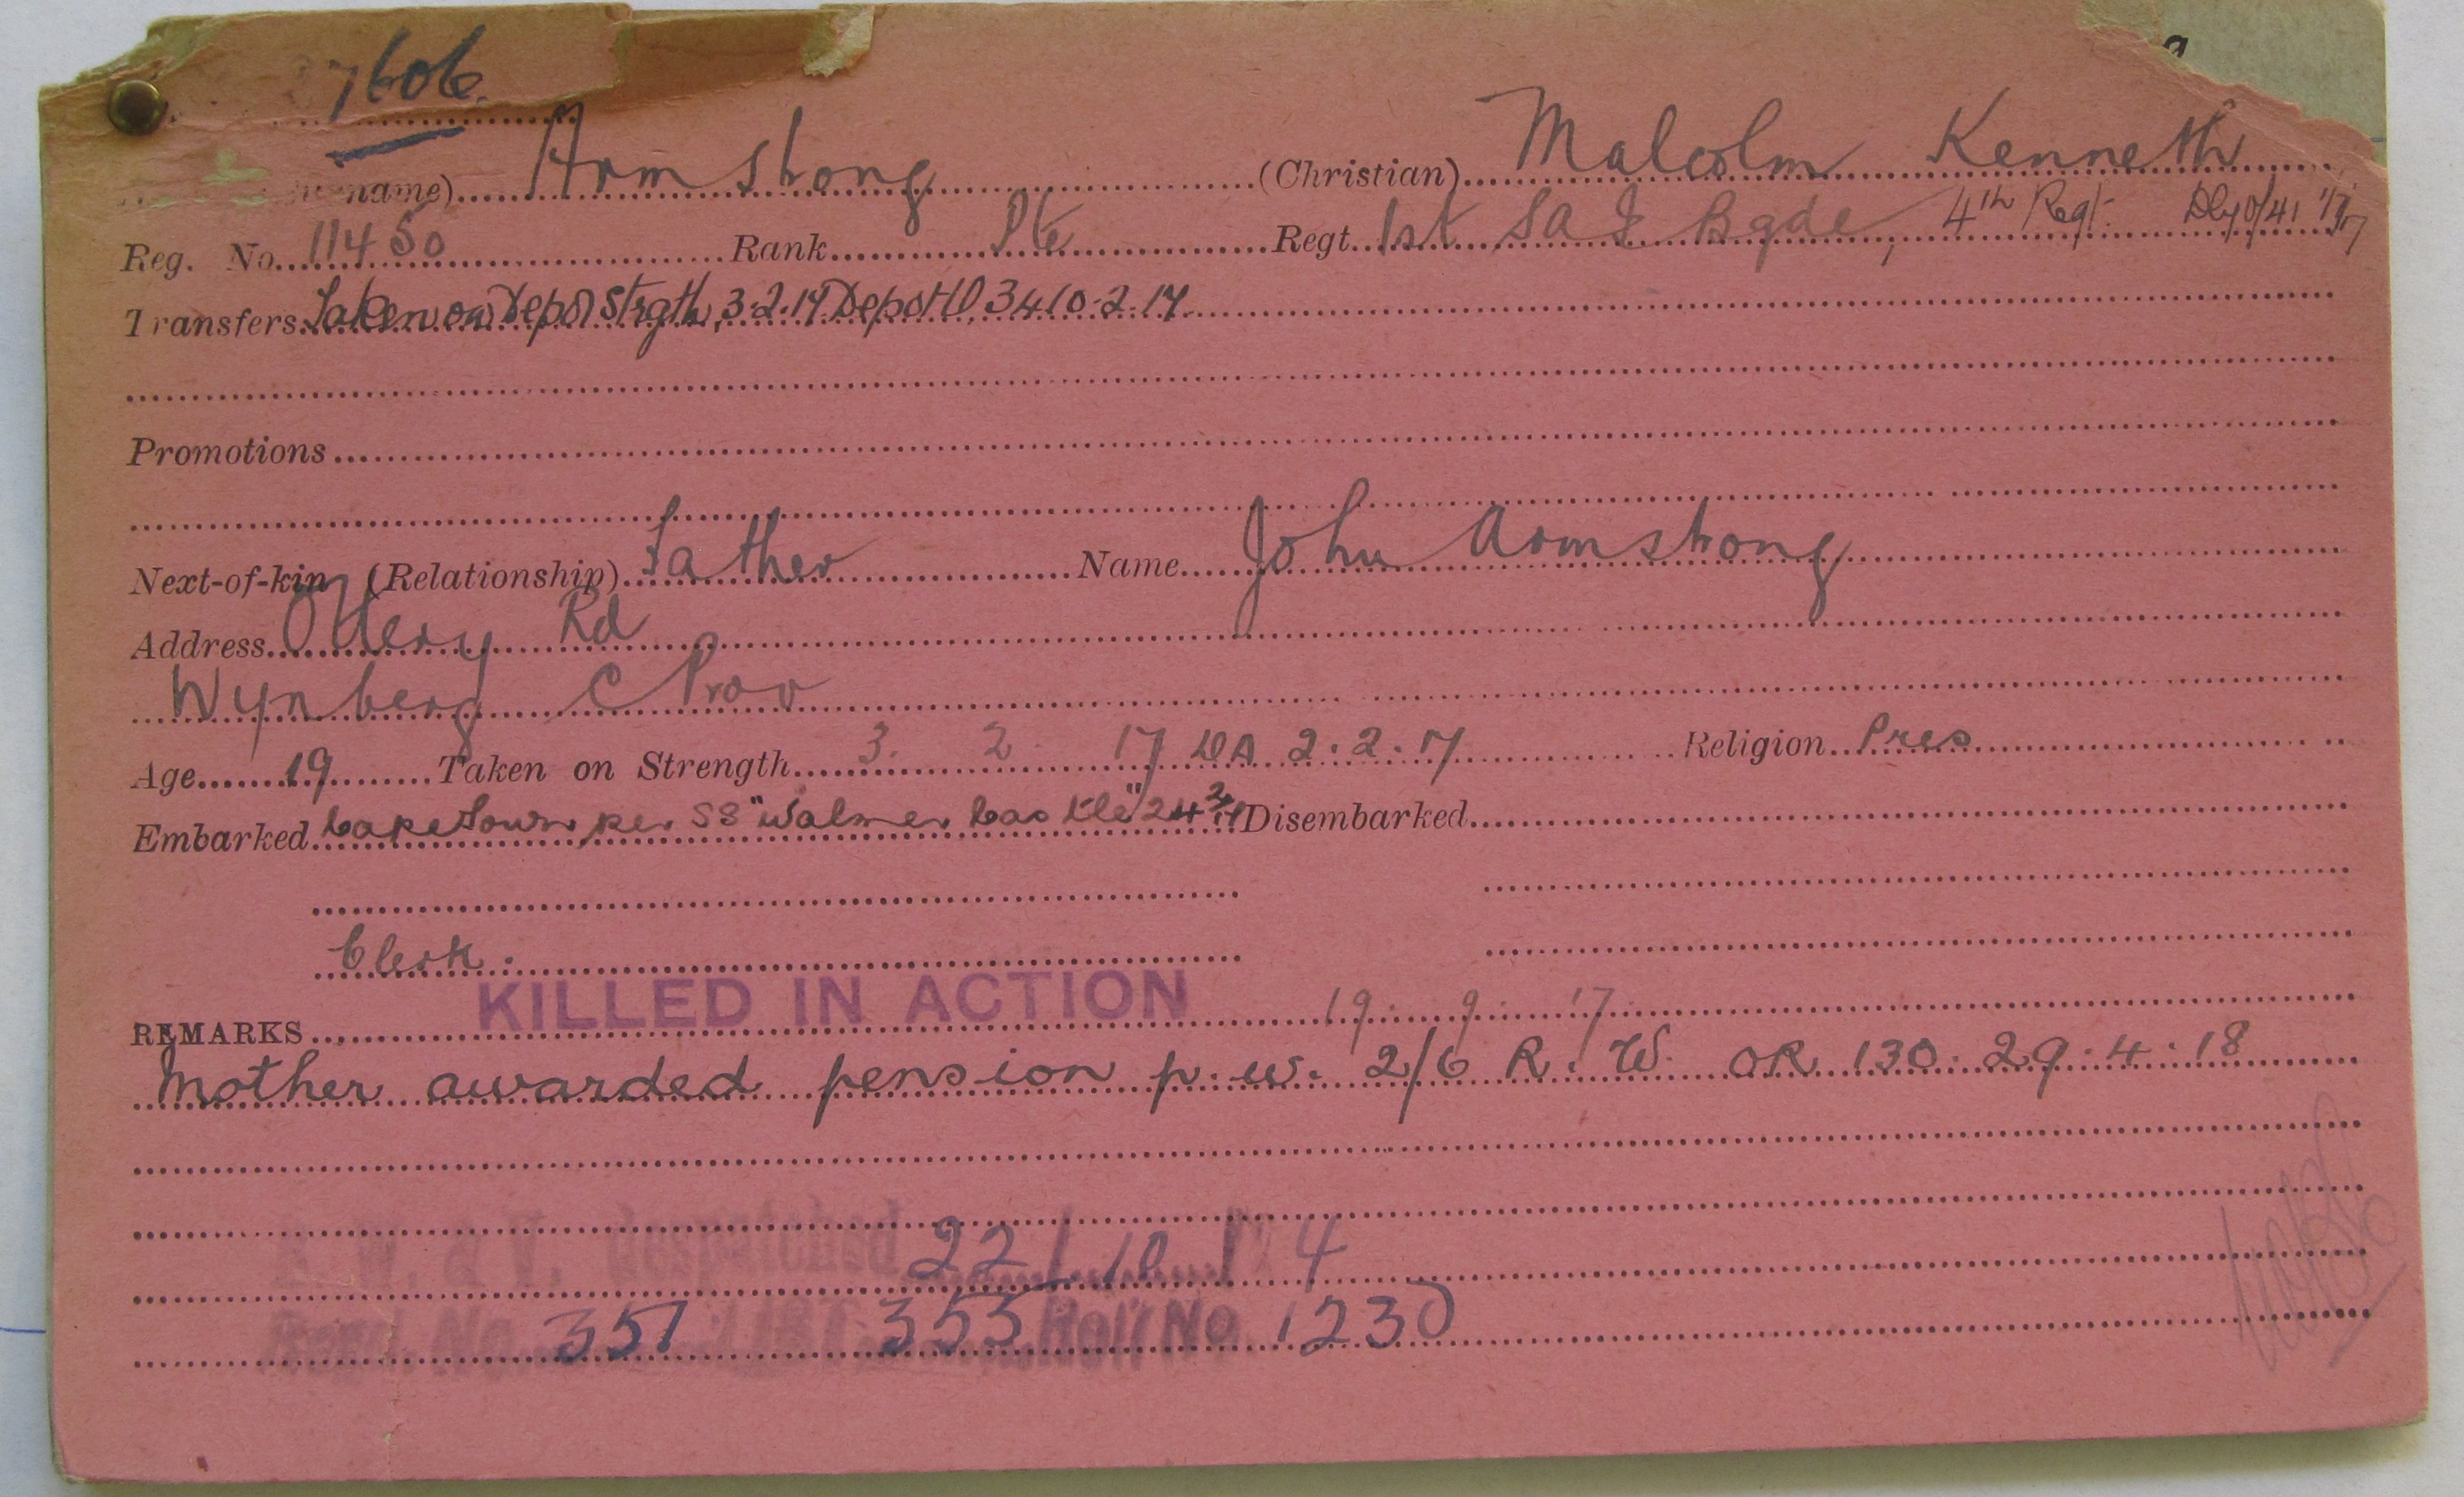 7606.
name) Armstrong (Christian) Malcolm Kenneth
Reg. No. 11450 Rank Pte Regt. 1st SA I Bgde, 4th Regt.
Transfers Taken on Depot Strgth, 3-2-17 Depot O, 34 10-2-17
Promotions
Next-of-kin (Relationship) Father Name John Armstrong
Address Ottery Rd
Wynberg C Prov
Age 19 Taken on Strength 3. 2. 17 DA 2.2.17 Religion Pres
Embarked Capetown per SS "Walmer Castle" 24 Disembarked
Clerk.
REMARKS KILLED IN ACTION 19. 9. 17
Mother awarded pension p.w. 2/6 R. W. OR 130. 29.4.18
Despatched 22/10/ 4
No. 351 353 Roll No 1230